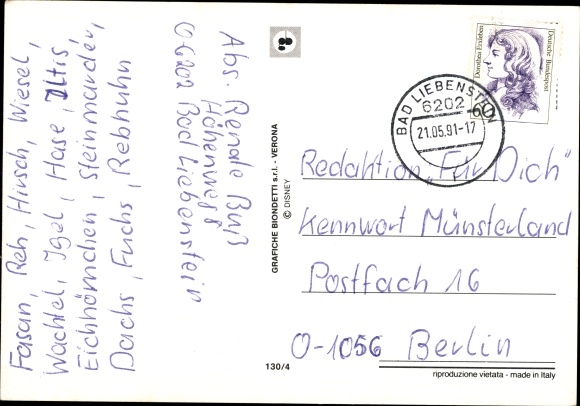 Fasan, Reh, Hirsch, Wiesel,
Wachtel, Igel, Hase, Iltis,
Eichhörnchen, Steinmarder,
Dachs, Fuchs, Rebhuhn
Abs. Renate Buß
Höhenweg 8
O 6202 Bad Liebenstein
GRAFICHE BIONDETTI s.r.l. - VERONA
© DISNEY
130/4
Dorothea Erxleben
Deutsche Bundespost
60
BAD LIEBENSTEIN
6202
21.05.91-17
Redaktion „Für Dich"
Kennwort Münsterland
Postfach 16
O-1056 Berlin
riproduzione vietata - made in Italy